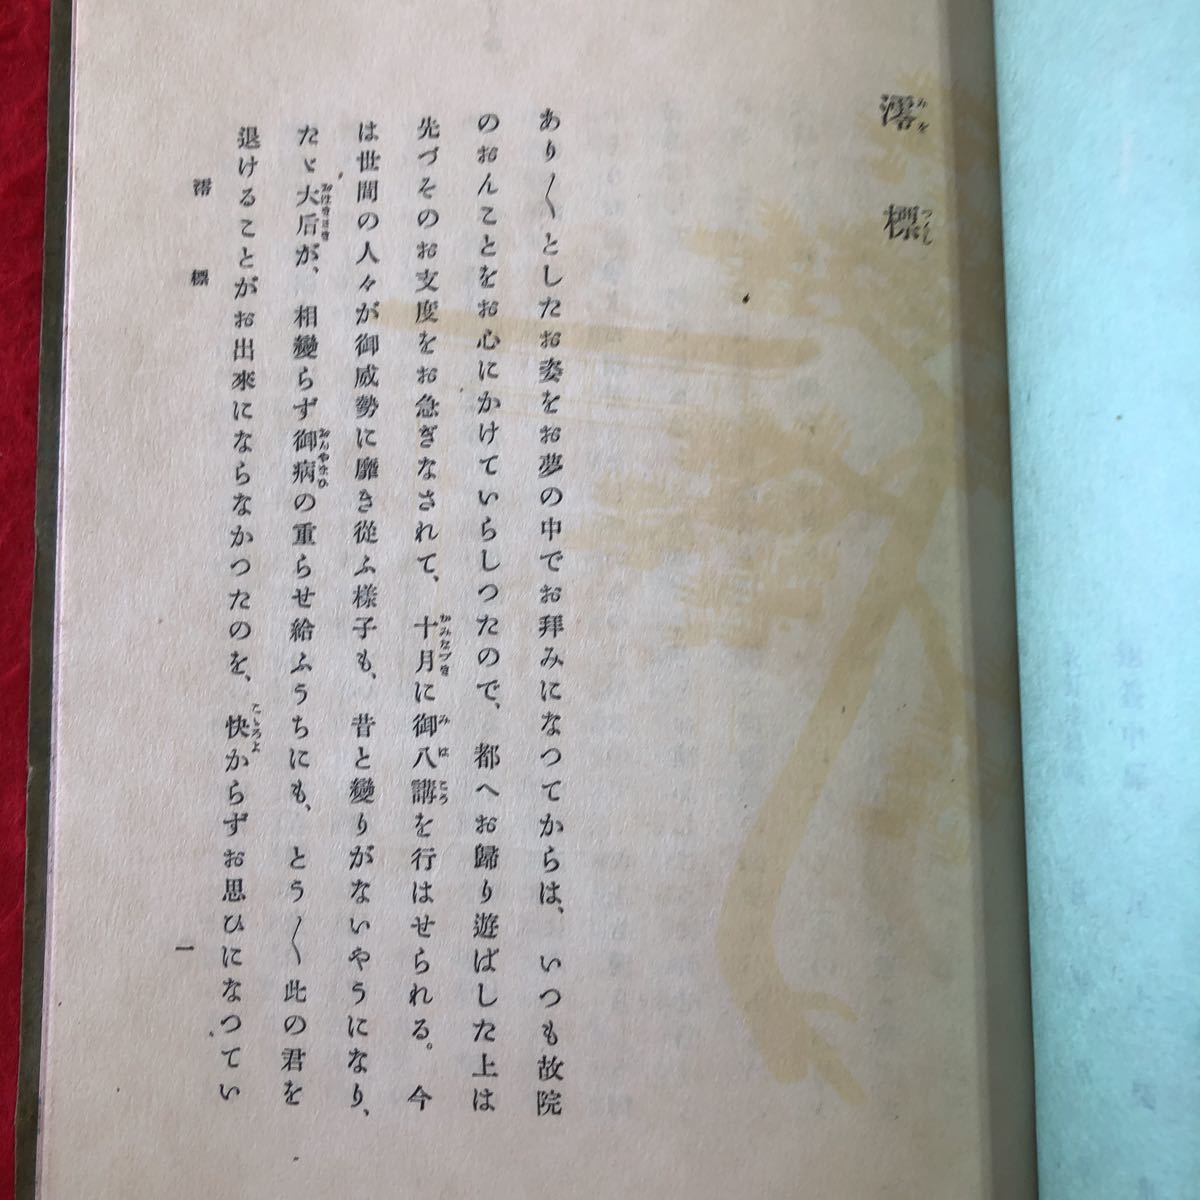 澪標
みをつくし
あり〳〵としたお姿をお夢の中でお拜みになつてからは、いつも故院
のおんことをお心にかけていらしつたので、都へお歸り遊ばした上は
先づそのお支度をお急ぎなされて、十月に御八講を行はせられる。今
かみなづき みはこう
は世間の人々が御威勢に靡き從ふ樣子も、昔と變りがないやうになり、
たゞ大后が、相變らず御病の重らせ給ふうちにも、とう〳〵此の君を
おほきさき おんやまひ
退けることがお出來にならなかつたのを、快からずお思ひになつてい
こゝろよ
澪標
一